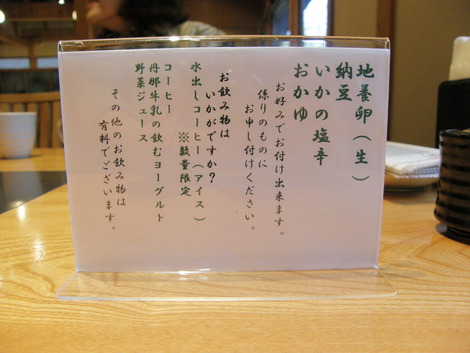 地養卵（生）
納豆
いかの塩辛
おかゆ
お好みでお付け出来ます。
係りのものに
お申し付けください。
お飲み物は
いかがですか？
水出しコーヒー（アイス）
※数量限定
コーヒー
丹那牛乳の飲むヨーグルト
野菜ジュース
その他のお飲み物は
有料でございます。